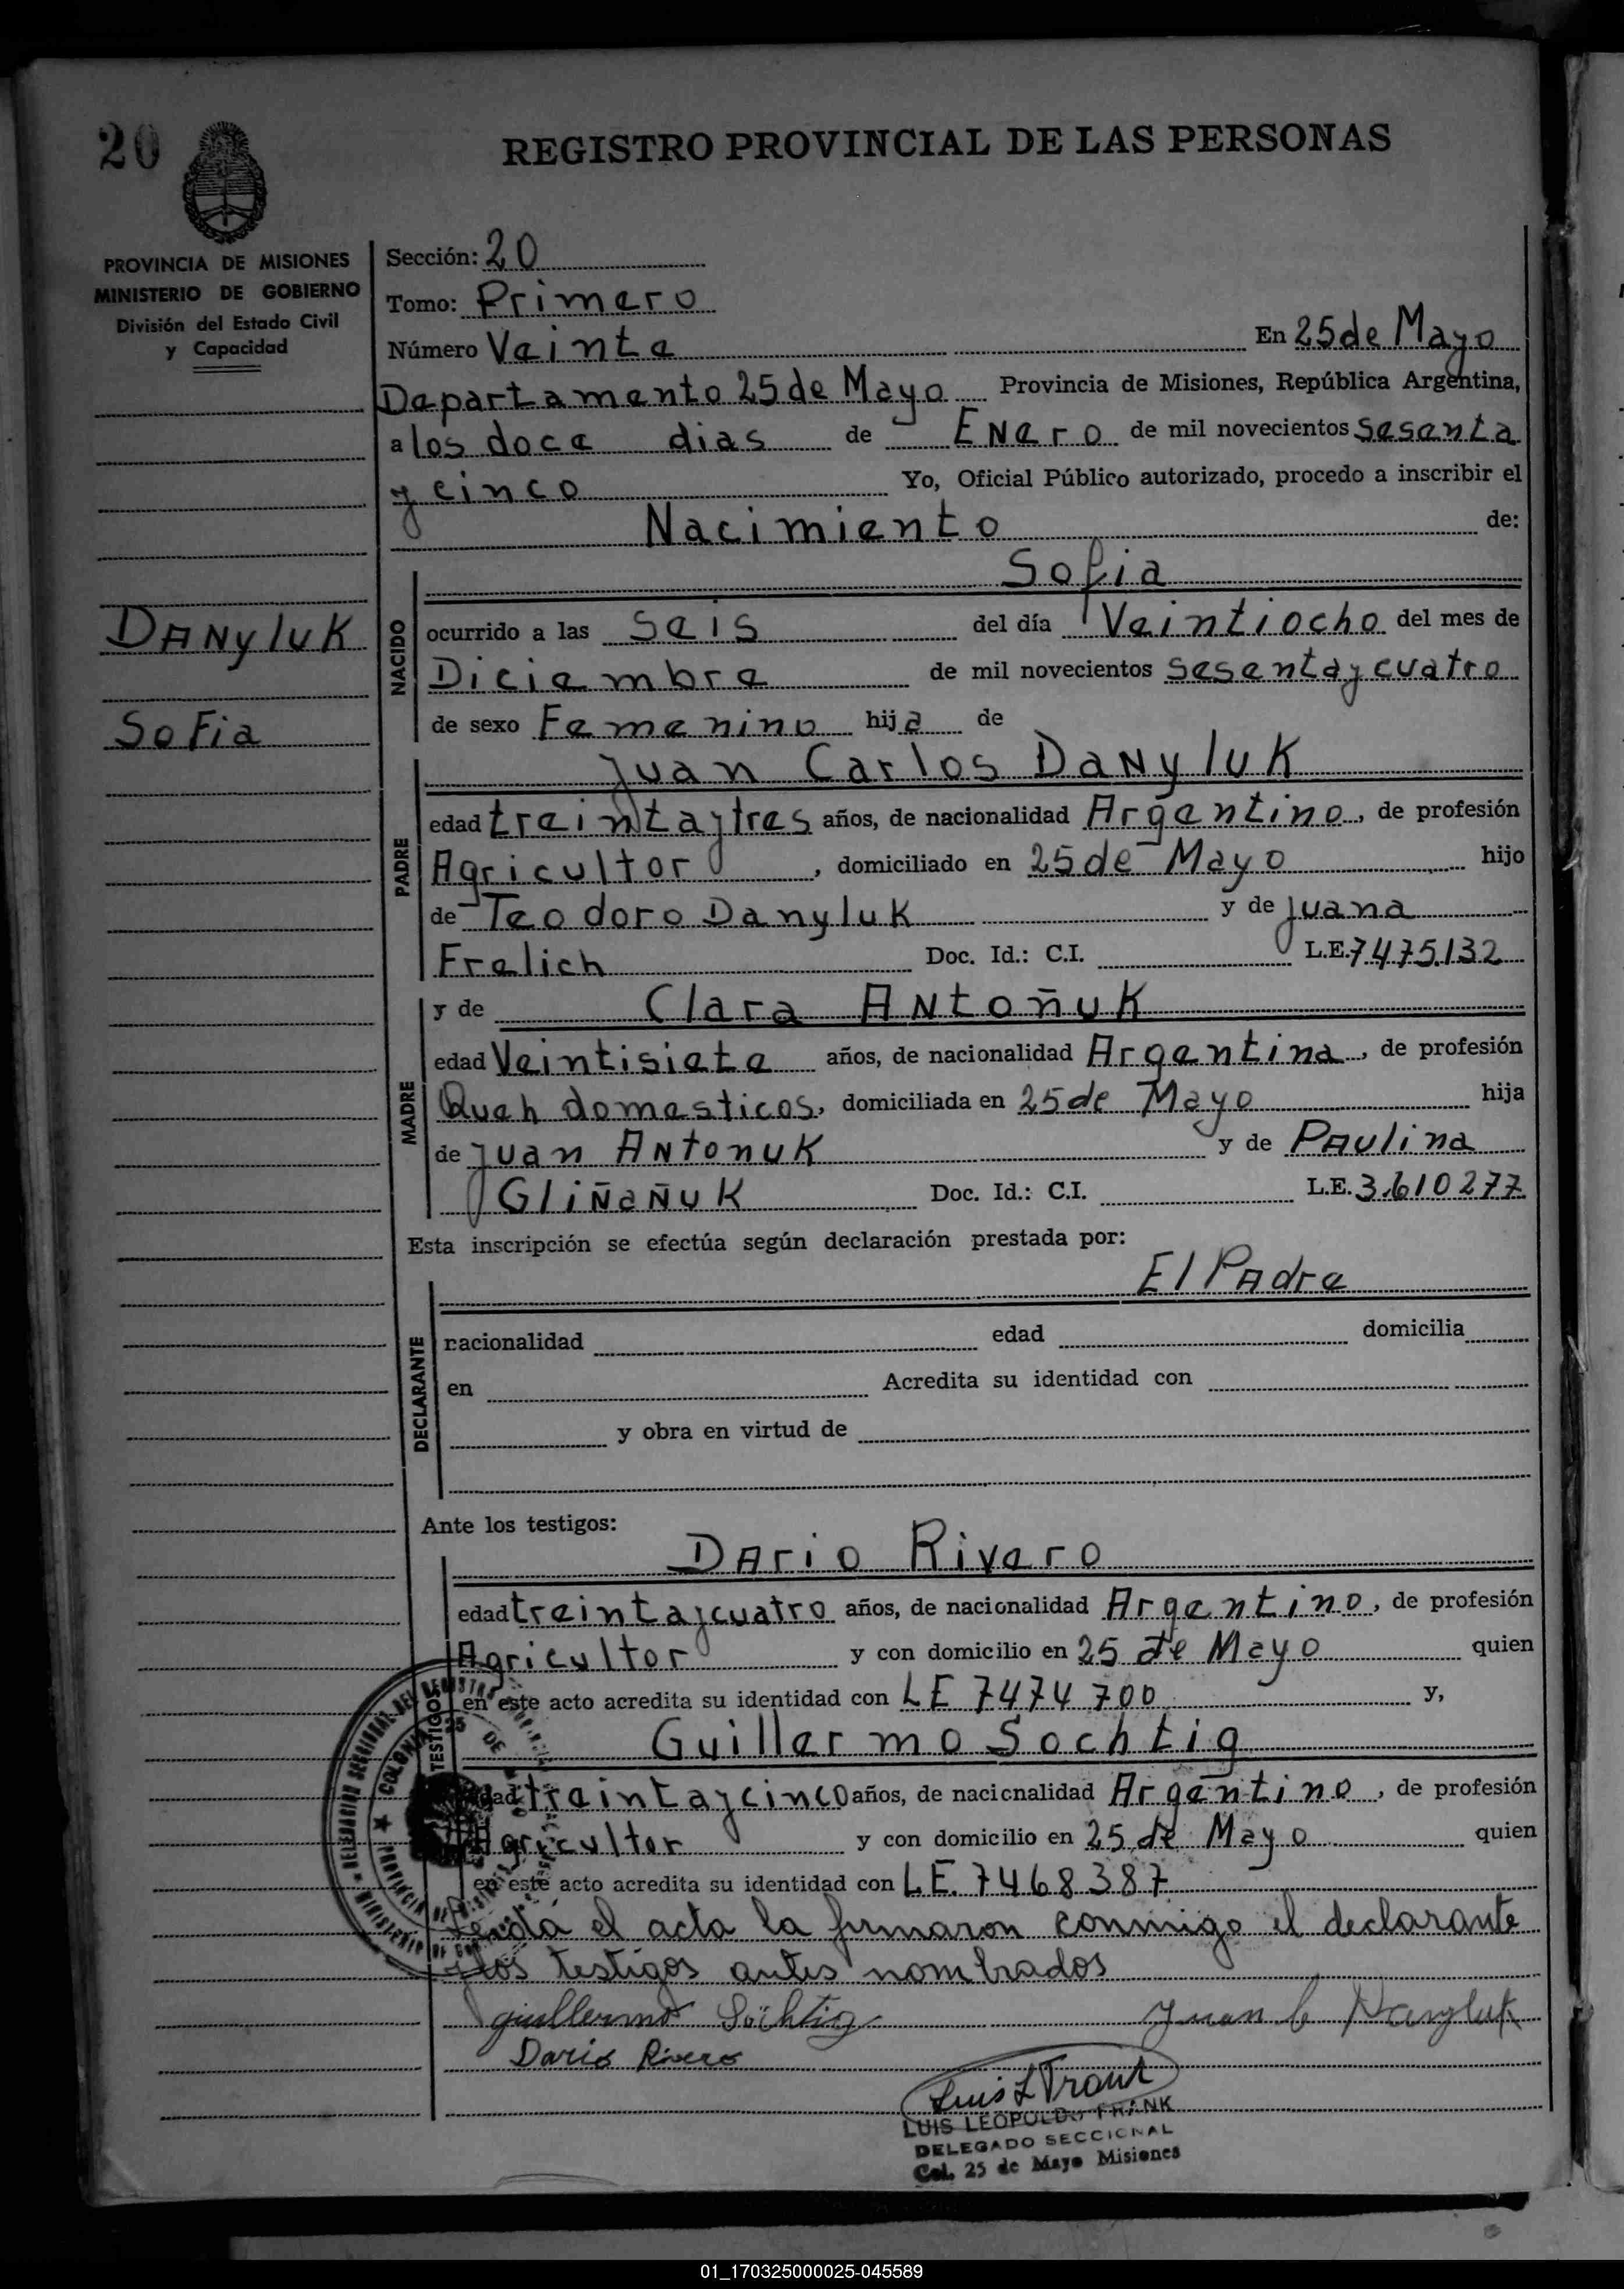 20
REGISTRO PROVINCIAL DE LAS PERSONAS
PROVINCIA DE MISIONES
MINISTERIO DE GOBIERNO
División del Estado Civil
y Capacidad
DANyluK
SoFia
Sección: 20
Tomo: Primero
Número Veinte En 25 de Mayo
Departamento 25 de Mayo Provincia de Misiones, República Argentina,
a los doce dias de ENero de mil novecientos Sesenta
y cinco Yo, Oficial Público autorizado, procedo a inscribir el
Nacimiento de:
NACIDO
Sofia
ocurrido a las Seis del día Veintiocho del mes de
Diciembre de mil novecientos sesenta y cuatro
de sexo Femenino hija de
PADRE
Juan Carlos DaNyluK
edad treinta y tres años, de nacionalidad Argentino, de profesión
Agricultor, domiciliado en 25 de Mayo hijo
de Teodoro Danyluk y de Juana
Frelich Doc. Id.: C.I. L.E. 7475.132
MADRE
y de Clara ANtoñuK
edad Veintisiete años, de nacionalidad Argentina, de profesión
Queh domesticos, domiciliada en 25 de Mayo hija
de Juan ANtonuK y de PAulina
GliÑeÑuK Doc. Id.: C.I. L.E. 3.610277
Esta inscripción se efectúa según declaración prestada por:
El PAdre
DECLARANTE
nacionalidad edad domicilia
en Acredita su identidad con
y obra en virtud de
Ante los testigos:
TESTIGOS
DArio Rivero
edad treinta y cuatro años, de nacionalidad Argentino, de profesión
Agricultor y con domicilio en 25 de Mayo quien
en este acto acredita su identidad con LE 7474 700 y,
Guillermo Sochtig
edad treinta y cinco años, de nacionalidad Argentino, de profesión
Agricultor y con domicilio en 25 de Mayo quien
en este acto acredita su identidad con LE. 7468387
el acta la firmaron conmigo el declarante
y los testigos antes nombrados
guillermo Söchtig Juan C Danyluk
Dario Rivero
Luis L Frank
LUIS LEOPOLDO FRANK
DELEGADO SECCIONAL
Col. 25 de Mayo Misiones
01_170325000025-045589